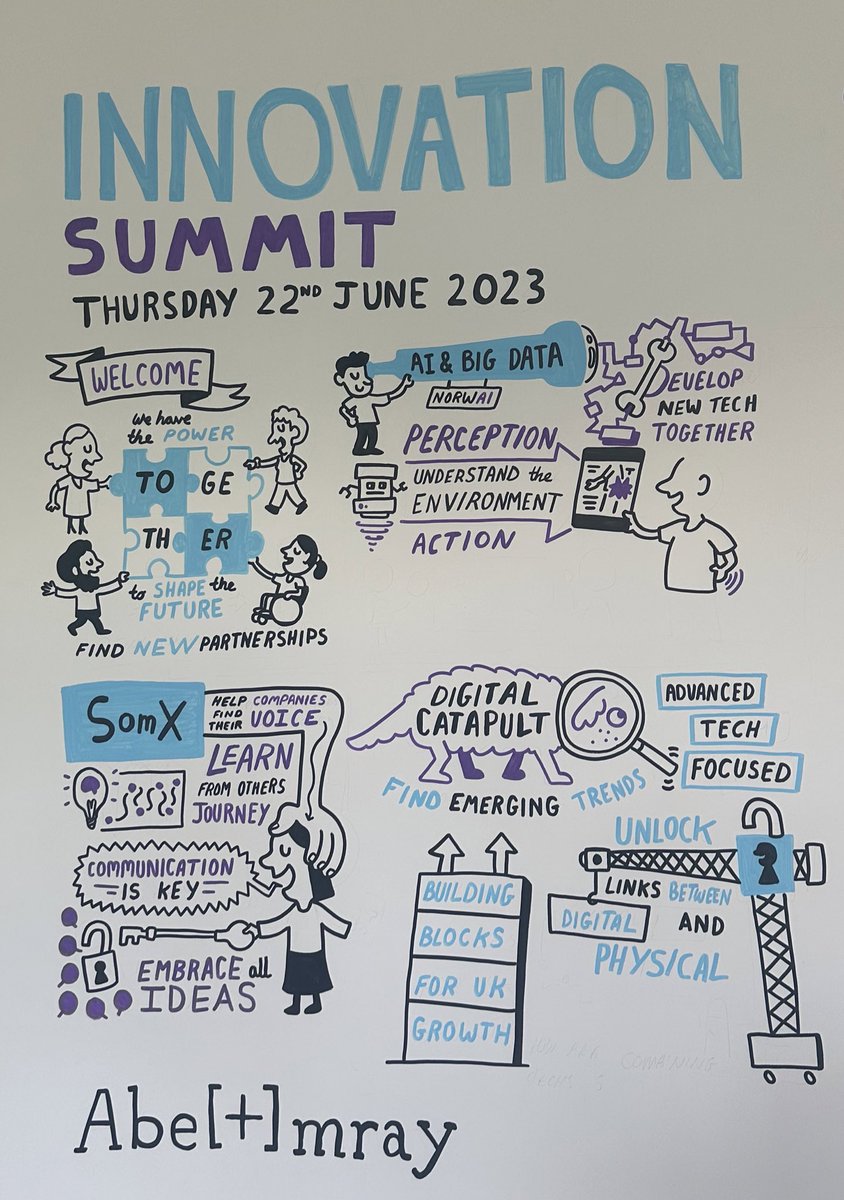 INNOVATION
SUMMIT
THURSDAY 22ND JUNE 2023
WELCOME
we have
the POWER
TO GE
TH ER
to SHAPE the
FUTURE
FIND NEW PARTNERSHIPS
AI & BIG DATA
NORWAI
DEVELOP
NEW TECH
TOGETHER
PERCEPTION
UNDERSTAND the
ENVIRONMENT
ACTION
SomX
HELP COMPANIES
FIND
THEIR VOICE
LEARN
FROM OTHERS
JOURNEY
COMMUNICATION
IS KEY
EMBRACE all
IDEAS
DIGITAL
CATAPULT
FIND EMERGING TRENDS
ADVANCED
TECH
FOCUSED
BUILDING
BLOCKS
FOR UK
GROWTH
UNLOCK
LINKS BETWEEN
DIGITAL AND
PHYSICAL
Abe[+]mray